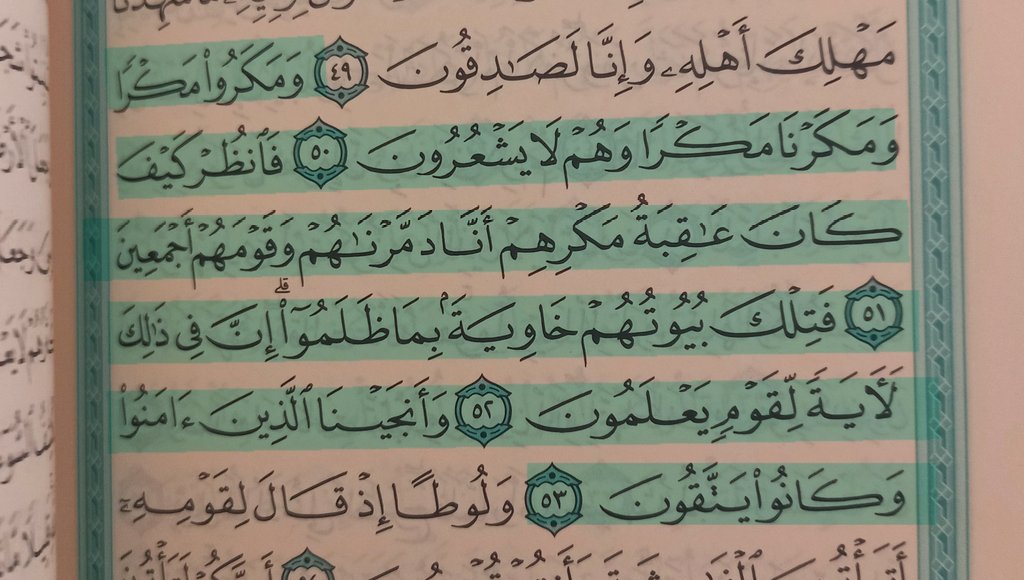 مَهْلِكَ أَهْلِهِۦ وَإِنَّا لَصَـٰدِقُونَ ٤٩ وَمَكَرُوا۟ مَكْرًا
وَمَكَرْنَا مَكْرًا وَهُمْ لَا يَشْعُرُونَ ٥٠ فَٱنظُرْ كَيْفَ
كَانَ عَـٰقِبَةُ مَكْرِهِمْ أَنَّا دَمَّرْنَـٰهُمْ وَقَوْمَهُمْ أَجْمَعِينَ
٥١ فَتِلْكَ بُيُوتُهُمْ خَاوِيَةًۢ بِمَا ظَلَمُوٓا۟ ۗ إِنَّ فِى ذَٰلِكَ
لَـَٔايَةً لِّقَوْمٍ يَعْلَمُونَ ٥٢ وَأَنجَيْنَا ٱلَّذِينَ ءَامَنُوا۟
وَكَانُوا۟ يَتَّقُونَ ٥٣ وَلُوطًا إِذْ قَالَ لِقَوْمِهِۦٓ